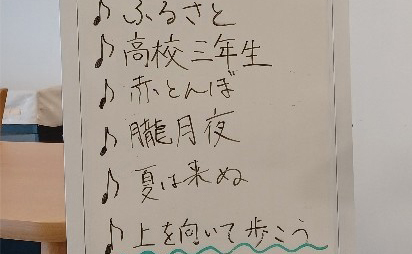 ♪ ふるさと
♪ 高校三年生
♪ 赤とんぼ
♪ 朧月夜
♪ 夏は来ぬ
♪ 上を向いて歩こう